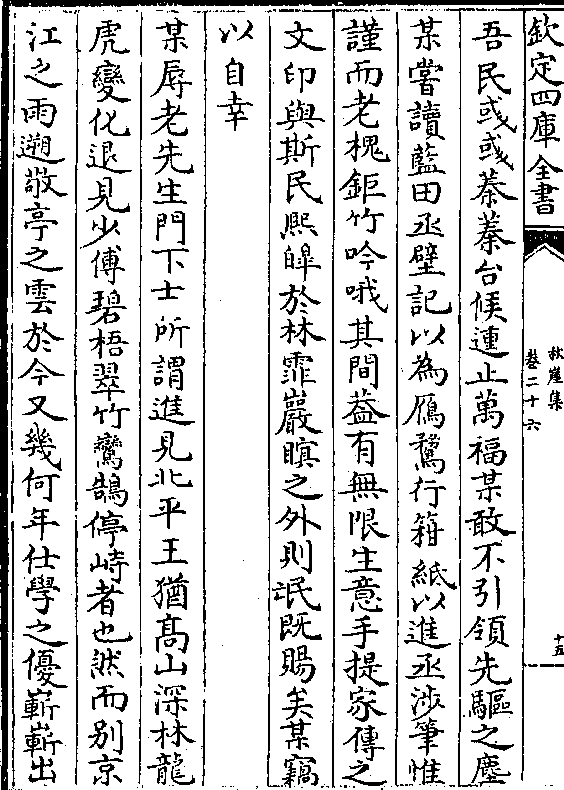 欽定四庫全書
秋崖集
卷二十六
十五
吾民彧彧蓁蓁台候連止萬福某敢不引領先驅之塵
某嘗讀藍田丞壁記以為鴈鶩行箝紙以進丞涉筆惟
謹而老槐鉅竹吟哦其間葢有無限生意手提家傳之
文印與斯民熈皥於林霏巖暝之外則氓既賜矣某竊
以自幸
某辱老先生門下士所謂進見北平王猶高山深林龍
虎變化退見少傅碧梧翠竹鸞鵠停峙者也然而别京
江之雨遡敬亭之雲於今又幾何年仕學之優嶄嶄出